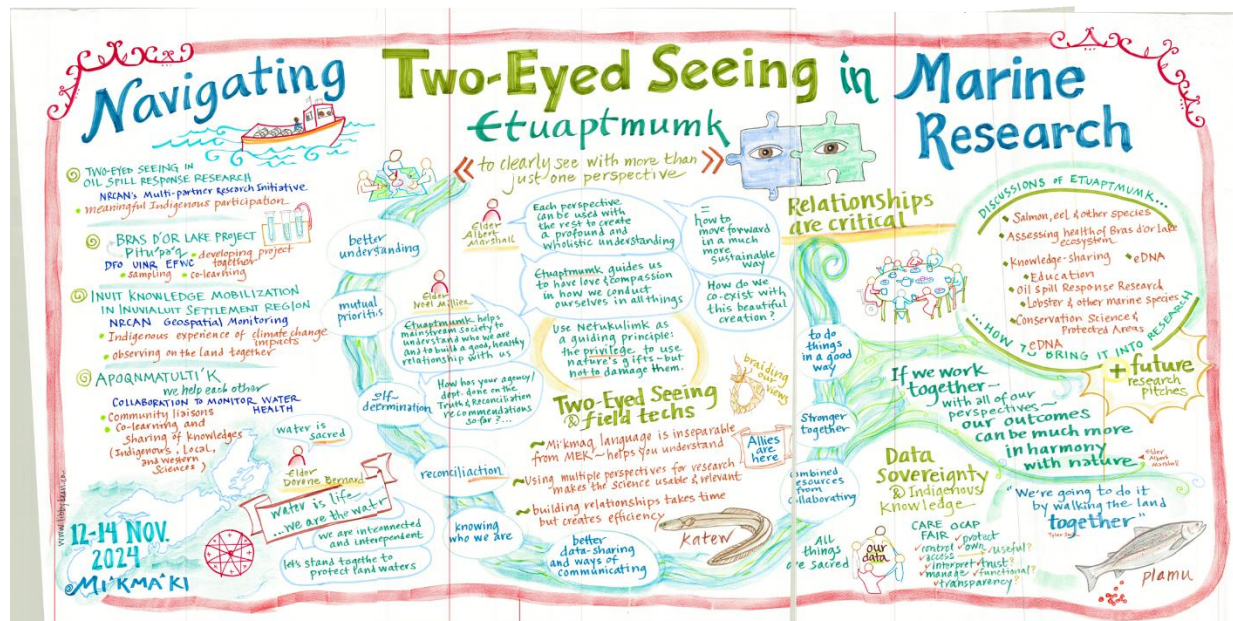 Navigating
Two-Eyed Seeing in Marine
Research
Etuaptmumk
to clearly see with more than
just one perspective
TWO-EYED SEEING IN
OIL SPILL RESPONSE RESEARCH
NRCAN's Multi-partner Research Initiative
meaningful Indigenous participation
BRAS D'OR LAKE PROJECT
Pitu'pa'q
developing project
together
DFO UINR EFWC
sampling
co-learning
INUIT KNOWLEDGE MOBILIZATION
IN INUVIALUIT SETTLEMENT REGION
NRCAN Geospatial Monitoring
Indigenous experience of climate change
impacts
observing on the land together
APOQNMATULTI'K
we help each other
COLLABORATION TO MONITOR WATER
HEALTH
Community liaisons
Co-learning and
sharing of knowledges
(Indigenous, Local,
and western
Sciences)
water is
sacred
Elder
Dorene Bernard
water is life
...we are the water
we are interconnected
and interdependent
let's stand together to
protect land waters
12-14 NOV.
2024
@MI'KMA'KI
better
understanding
mutual
priorities
self-
determination
reconciliaction
knowing
who we are
better
data-sharing
and ways of
communicating
combined
resources
from
collaborating
Stronger
together
to do
things
in a good
way
Elder
Albert
Marshall
Each perspective
can be used with
the rest to create
a profound and
wholistic understanding
=
how to
move forward
in a much
more
sustainable
way
Etuaptmumk guides us
to have love & compassion
in how we conduct
ourselves in all things
How do we
co-exist with
this beautiful
creation?
Elder
Noel Milliea
Etuaptmumk helps
mainstream society to
understand who we are
and to build a good, healthy
relationship with us
How has your agency/
dept. done on the
Truth & Reconciliation
recommendations
so far?...
Use Netukulimk as
a guiding principle:
the privilege to use
nature's gifts - but
not to damage them.
braiding
our
views
Two-Eyed Seeing
field techs
~ Mi'kmaq language is inseparable
from MEK ~ helps you understand
~ Using multiple perspectives for research
makes the Science usable & relevant
~ building relationships takes time
but creates efficiency
Allies
are
here
katew
All
things
are sacred
Relationships
are critical
DISCUSSIONS OF ETUAPTMUMK...
Salmon, eel & other species
Assessing health of Bras d'or lake
ecosystem
Knowledge-sharing
eDNA
Education
Oil Spill Response Research
Lobster & other marine species
Conservation Science &
Protected Areas
eDNA
...HOW TO BRING IT INTO RESEARCH
+ future
research
pitches
If we work
together -
with all of our
perspectives -
our outcomes
can be much more
in harmony
with nature
Elder
Albert
Marshall
Data
Sovereignty
& Indigenous
Knowledge
our
data
CARE OCAP
FAIR
protect
control
own
useful?
access
interpret
trust?
manage
functional?
transparency?
"We're going to do it
by walking the land
together"
plamu